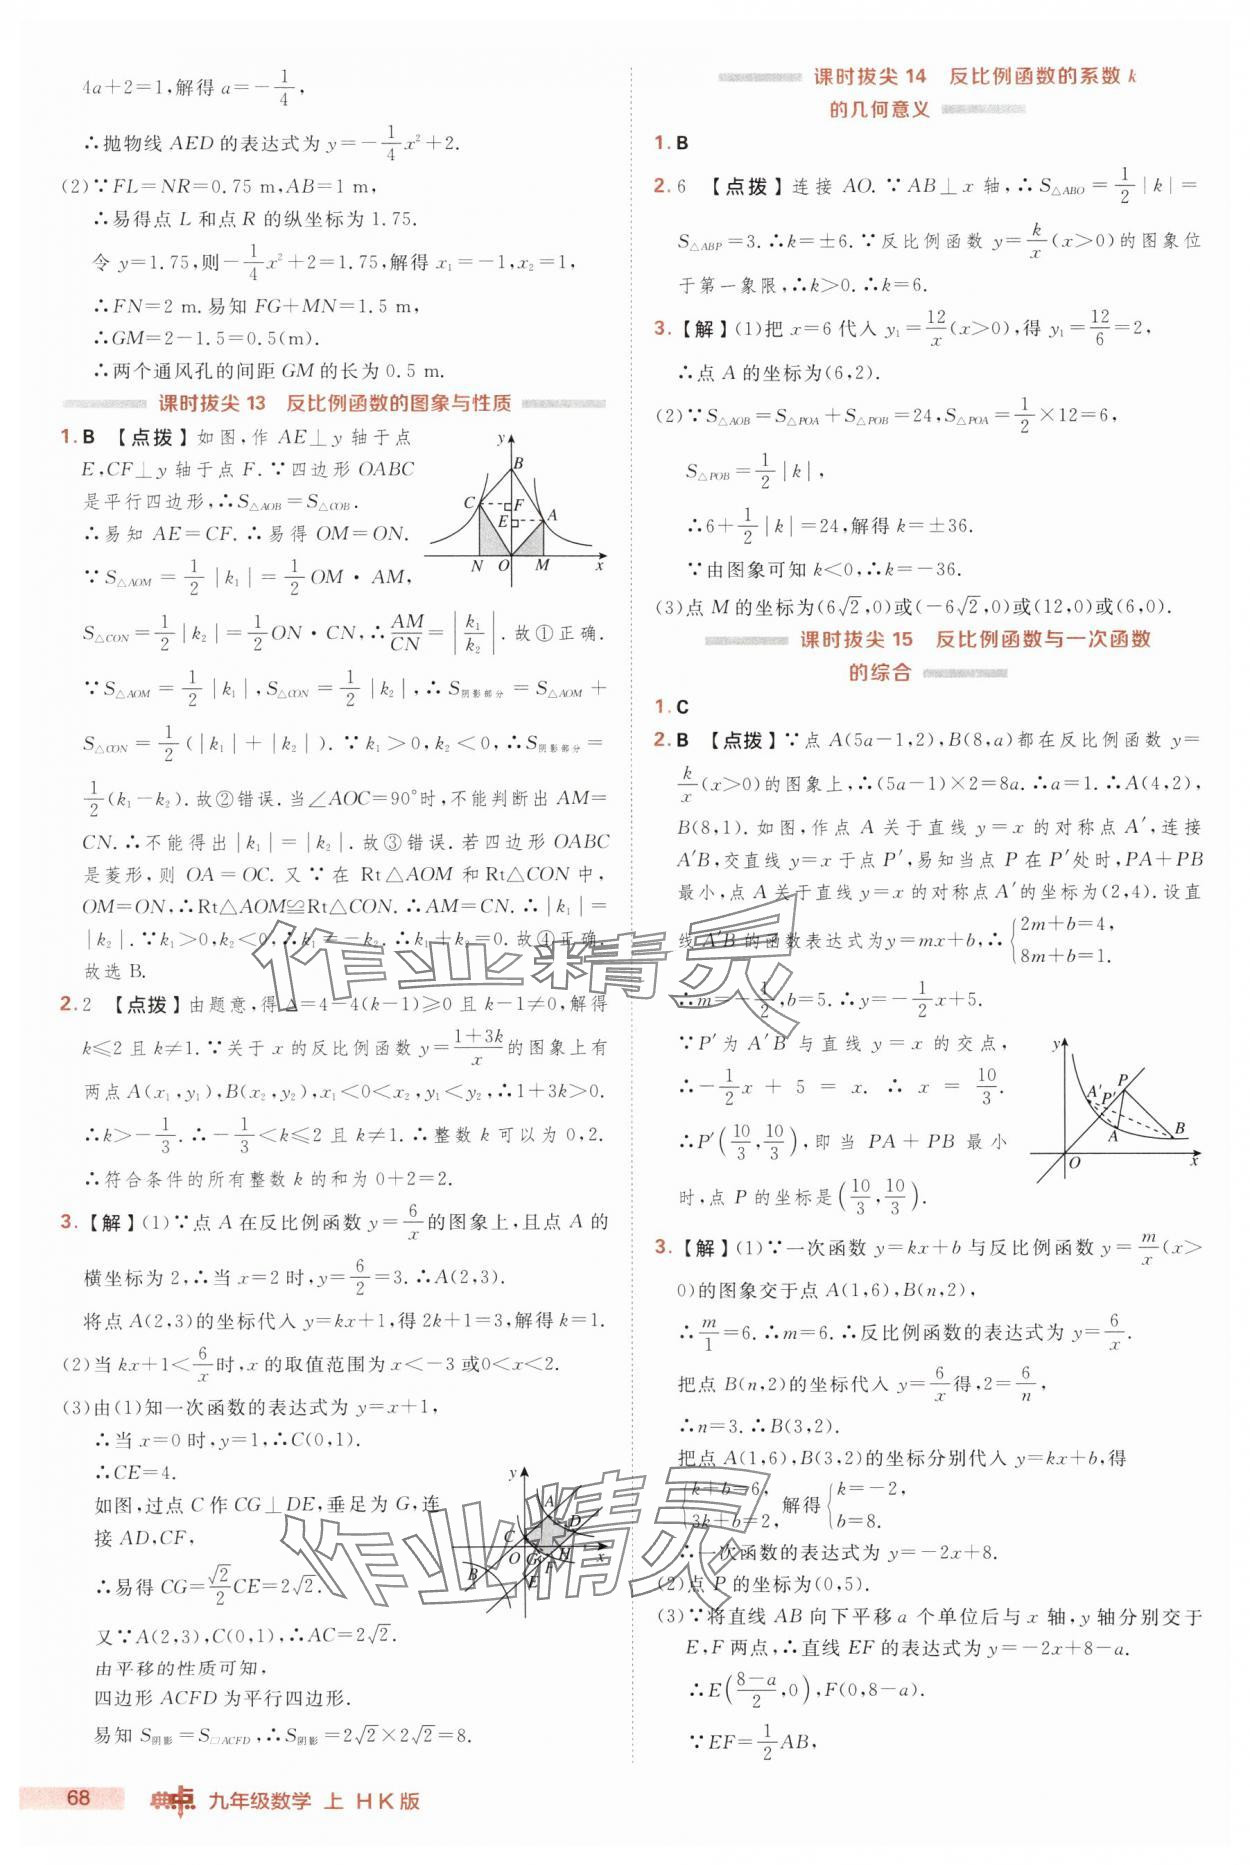 4a+2=1,解得 a=-1/4,
∴抛物线 AED 的表达式为 y=-1/4x²+2.
(2)∵FL=NR=0.75 m,AB=1 m,
∴易得点 L 和点 R 的纵坐标为 1.75.
令 y=1.75,则-1/4x²+2=1.75,解得 x₁=-1,x₂=1,
∴FN=2 m.易知 FG+MN=1.5 m,
∴GM=2-1.5=0.5(m).
∴两个通风孔的间距 GM 的长为 0.5 m.
课时拔尖 13 反比例函数的图象与性质
1.B 【点拨】如图,作 AE⊥y 轴于点
E,CF⊥y 轴于点 F.∵四边形 OABC
是平行四边形,∴S△AOB=S△COB.
∴易知 AE=CF.∴易得 OM=ON.
∵S△AOM=1/2|k₁|=1/2OM·AM,
S△CON=1/2|k₂|=1/2ON·CN,∴AM/CN=|k₁/k₂|.故①正确.
∵S△AOM=1/2|k₁|,S△CON=1/2|k₂|,∴S阴影部分=S△AOM+
S△CON=1/2(|k₁|+|k₂|).∵k₁>0,k₂<0,∴S阴影部分=
1/2(k₁-k₂).故②错误.当∠AOC=90°时,不能判断出 AM=
CN.∴不能得出|k₁|=|k₂|.故③错误.若四边形 OABC
是菱形,则 OA=OC.又∵在 Rt△AOM 和 Rt△CON 中,
OM=ON,∴Rt△AOM≌Rt△CON.∴AM=CN.∴|k₁|=
|k₂|.∵k₁>0,k₂<0,∴k₁=-k₂.∴k₁+k₂=0.故④正确.
故选 B.
y
B
C
F
E
A
N
O
M
x
2.2 【点拨】由题意,得Δ=4-4(k-1)≥0且 k-1≠0,解得
k≤2且 k≠1.∵关于 x 的反比例函数 y=(1+3k)/x的图象上有
两点 A(x₁,y₁),B(x₂,y₂),x₁<0<x₂,y₁<y₂,∴1+3k>0.
∴k>-1/3.∴-1/3<k≤2且 k≠1.∴整数 k 可以为 0,2.
∴符合条件的所有整数 k 的和为 0+2=2.
3.【解】(1)∵点 A 在反比例函数 y=6/x的图象上,且点 A 的
横坐标为 2,∴当 x=2 时,y=6/2=3.∴A(2,3).
将点 A(2,3)的坐标代入 y=kx+1,得 2k+1=3,解得 k=1.
(2)当 kx+1<6/x时,x 的取值范围为 x<-3 或0<x<2.
(3)由(1)知一次函数的表达式为 y=x+1,
∴当 x=0 时,y=1,∴C(0,1).
∴CE=4.
如图,过点 C 作 CG⊥DE,垂足为 G,连
接 AD,CF,
∴易得 CG=√2/2CE=2√2.
又∵A(2,3),C(0,1),∴AC=2√2.
由平移的性质可知,
四边形 ACFD 为平行四边形.
易知 S阴影=S□ACFD,∴S阴影=2√2×2√2=8.
y
A
D
C
O
G
H
x
B
F
E
68 典中点 九年级数学 上 HK版
课时拔尖 14 反比例函数的系数 k
的几何意义
1.B
2.6 【点拨】连接 AO.∵AB⊥x 轴,∴S△ABO=1/2|k|=
S△ABP=3.∴k=±6.∵反比例函数 y=k/x(x>0)的图象位
于第一象限,∴k>0.∴k=6.
3.【解】(1)把 x=6 代入 y₁=12/x(x>0),得 y₁=12/6=2,
∴点 A 的坐标为(6,2).
(2)∵S△AOB=S△POA+S△POB=24,S△POA=1/2×12=6,
S△POB=1/2|k|,
∴6+1/2|k|=24,解得 k=±36.
∵由图象可知 k<0,∴k=-36.
(3)点 M 的坐标为(6√2,0)或(-6√2,0)或(12,0)或(6,0).
课时拔尖 15 反比例函数与一次函数
的综合
1.C
2.B 【点拨】∵点 A(5a-1,2),B(8,a)都在反比例函数 y=
k/x(x>0)的图象上,∴(5a-1)×2=8a.∴a=1.∴A(4,2),
B(8,1).如图,作点 A 关于直线 y=x 的对称点 A′,连接
A′B,交直线 y=x 于点 P′,易知当点 P 在 P′处时,PA+PB
最小,点 A 关于直线 y=x 的对称点 A′的坐标为(2,4).设直
线 A′B 的函数表达式为 y=mx+b,∴{2m+b=4,
8m+b=1.
∴m=-1/2,b=5.∴y=-1/2x+5.
∵P′为 A′B 与直线 y=x 的交点,
∴-1/2x+5=x.∴x=10/3.
∴P′(10/3,10/3),即当 PA+PB 最小
时,点 P 的坐标是(10/3,10/3).
y
A′
P′
P
A
B
O
x
3.【解】(1)∵一次函数 y=kx+b 与反比例函数 y=m/x(x>
0)的图象交于点 A(1,6),B(n,2),
∴m/1=6.∴m=6.∴反比例函数的表达式为 y=6/x.
把点 B(n,2)的坐标代入 y=6/x得,2=6/n,
∴n=3.∴B(3,2).
把点 A(1,6),B(3,2)的坐标分别代入 y=kx+b,得
{k+b=6, 3k+b=2, 解得{k=-2, b=8.
∴一次函数的表达式为 y=-2x+8.
(2)点 P 的坐标为(0,5).
(3)∵将直线 AB 向下平移 a 个单位后与 x 轴,y 轴分别交于
E,F 两点,∴直线 EF 的表达式为 y=-2x+8-a.
∴E((8-a)/2,0),F(0,8-a).
∵EF=1/2AB,
作业精灵
作业精灵